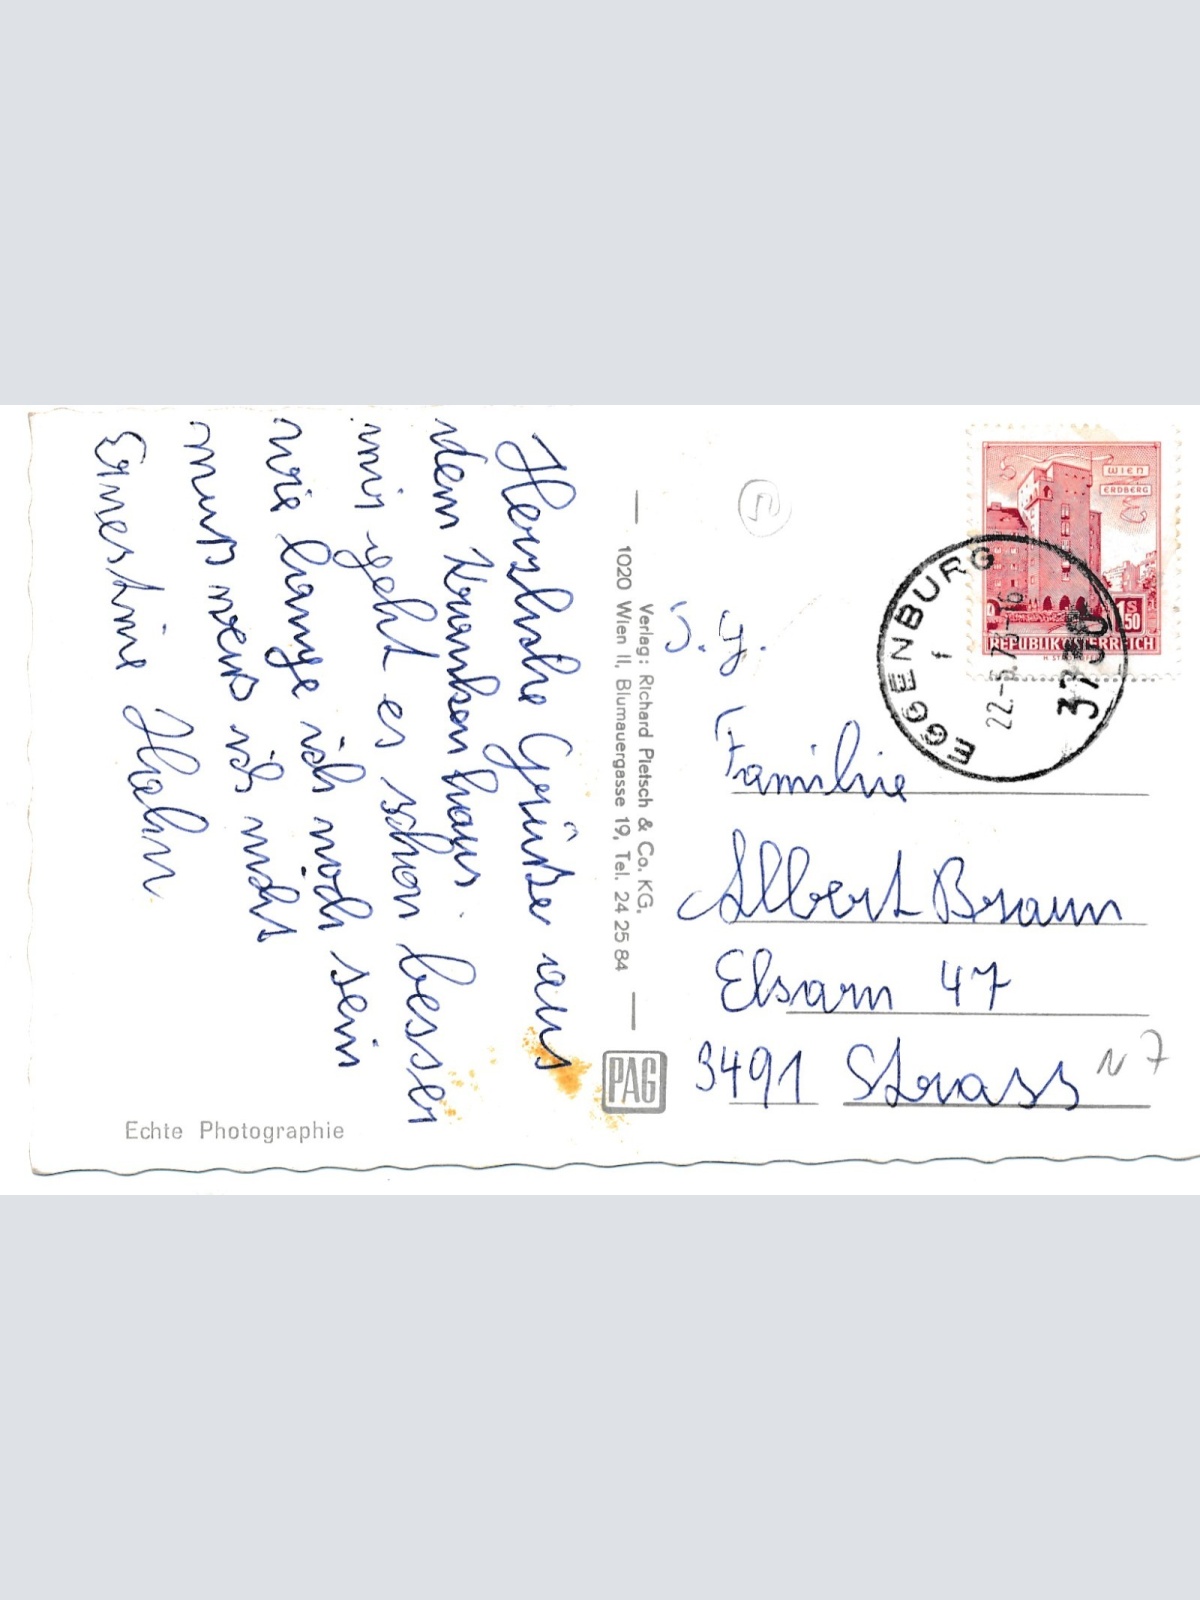 Herzliche Grüße aus
dem Krankenhaus.
mir geht es schon besser
wie lange ich noch sein
muß weiß ich nicht
Ernestine Hahn
Echte Photographie
Verlag: Richard Pietsch & Co. KG.
1020 Wien II, Blumauergasse 19, Tel. 24 25 84
PAG
WIEN
ERDBERG
1 S 50
REPUBLIK ÖSTERREICH
EGGENBURG
f
3730
S. g.
Familie
Albert Braun
Elsarn 47
3491 Strass
N 7